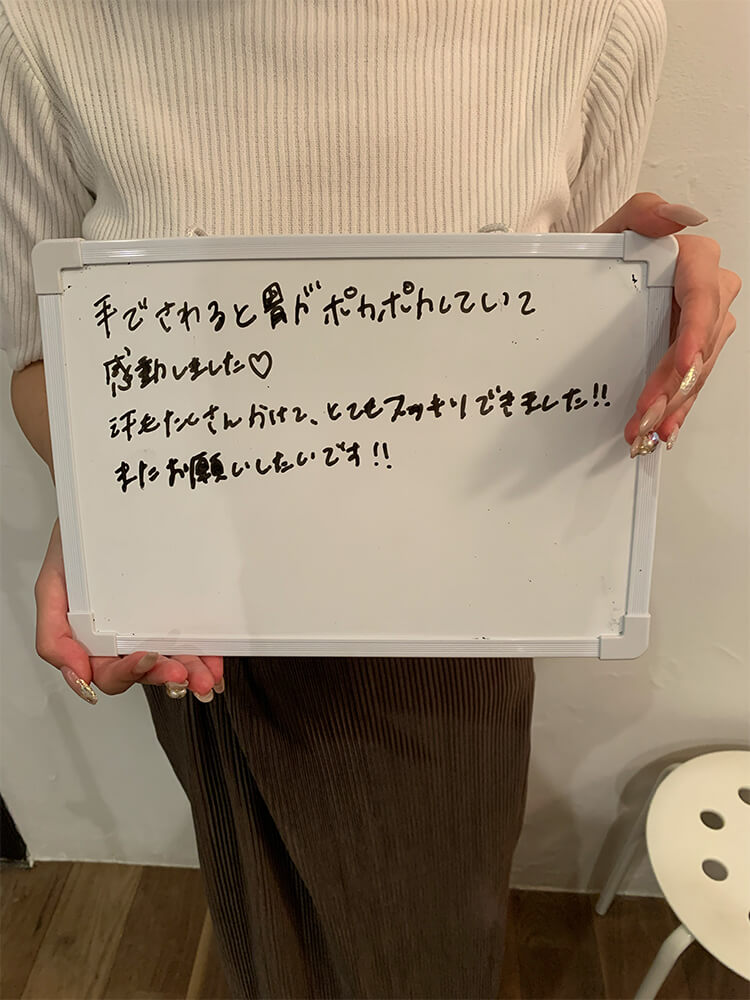 手でさわると胃がポカポカしていて
感動しました♡
汗もたくさんかけて、とてもスッキリできました!!
またお願いしたいです!!